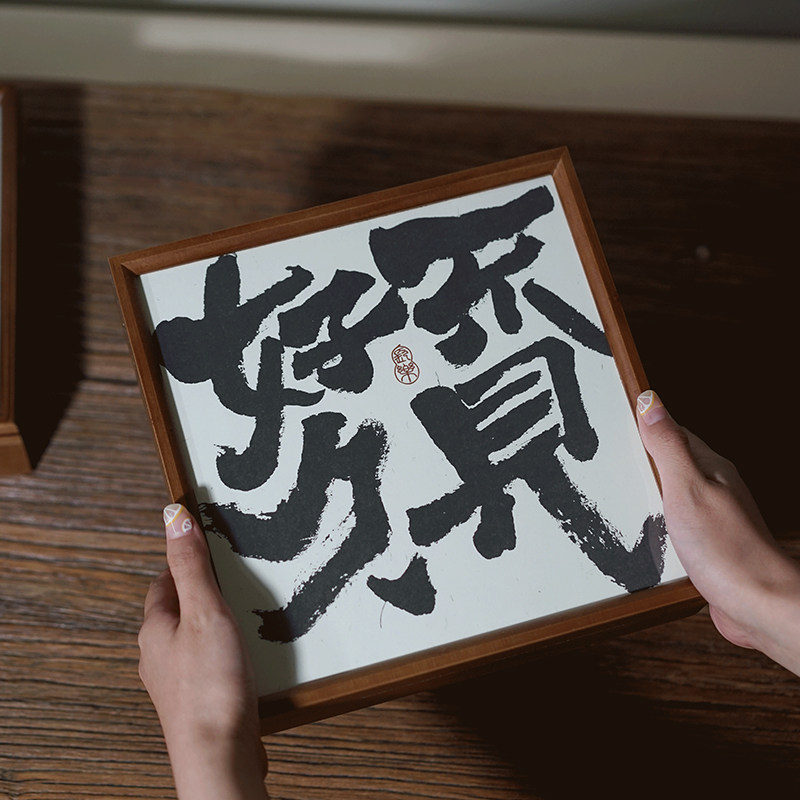 好久
不見